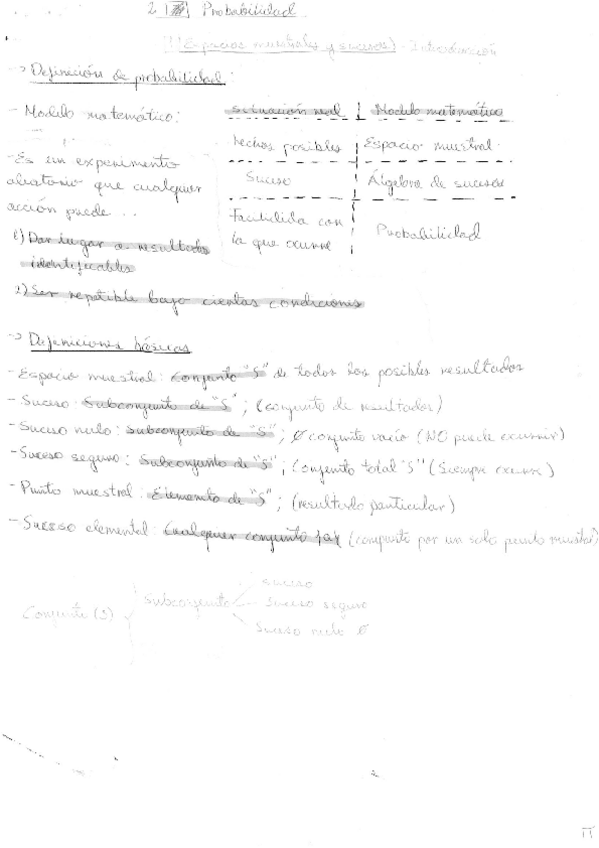 2 Probabilidad
(Espacios muestrales y sucesos) - Introducción
-> Definición de probabilidad:
- Modelo matemático:
situación real | Modelo matemático
hechos posibles | Espacio muestral
Suceso | Álgebra de sucesos
Facilidad con la que ocurre | Probabilidad
- Es un experimento
aleatorio que cualquier
acción puede...
1) Dar lugar a resultados
identificables
2) Ser repetible bajo ciertas condiciones
-> Definiciones básicas
- Espacio muestral: Conjunto "S" de todos los posibles resultados
- Suceso: Subconjunto de "S"; (conjunto de resultados)
- Suceso nulo: Subconjunto de "S"; Ø conjunto vacío (NO puede ocurrir)
- Suceso seguro: Subconjunto de "S"; Conjunto total "S" (Siempre ocurre)
- Punto muestral: Elemento de "S"; (resultado particular)
- Suceso elemental: Cualquier conjunto (compuesto por un solo punto muestral)
Conjunto (S) { Subconjunto
suceso
Suceso seguro
Suceso nulo Ø